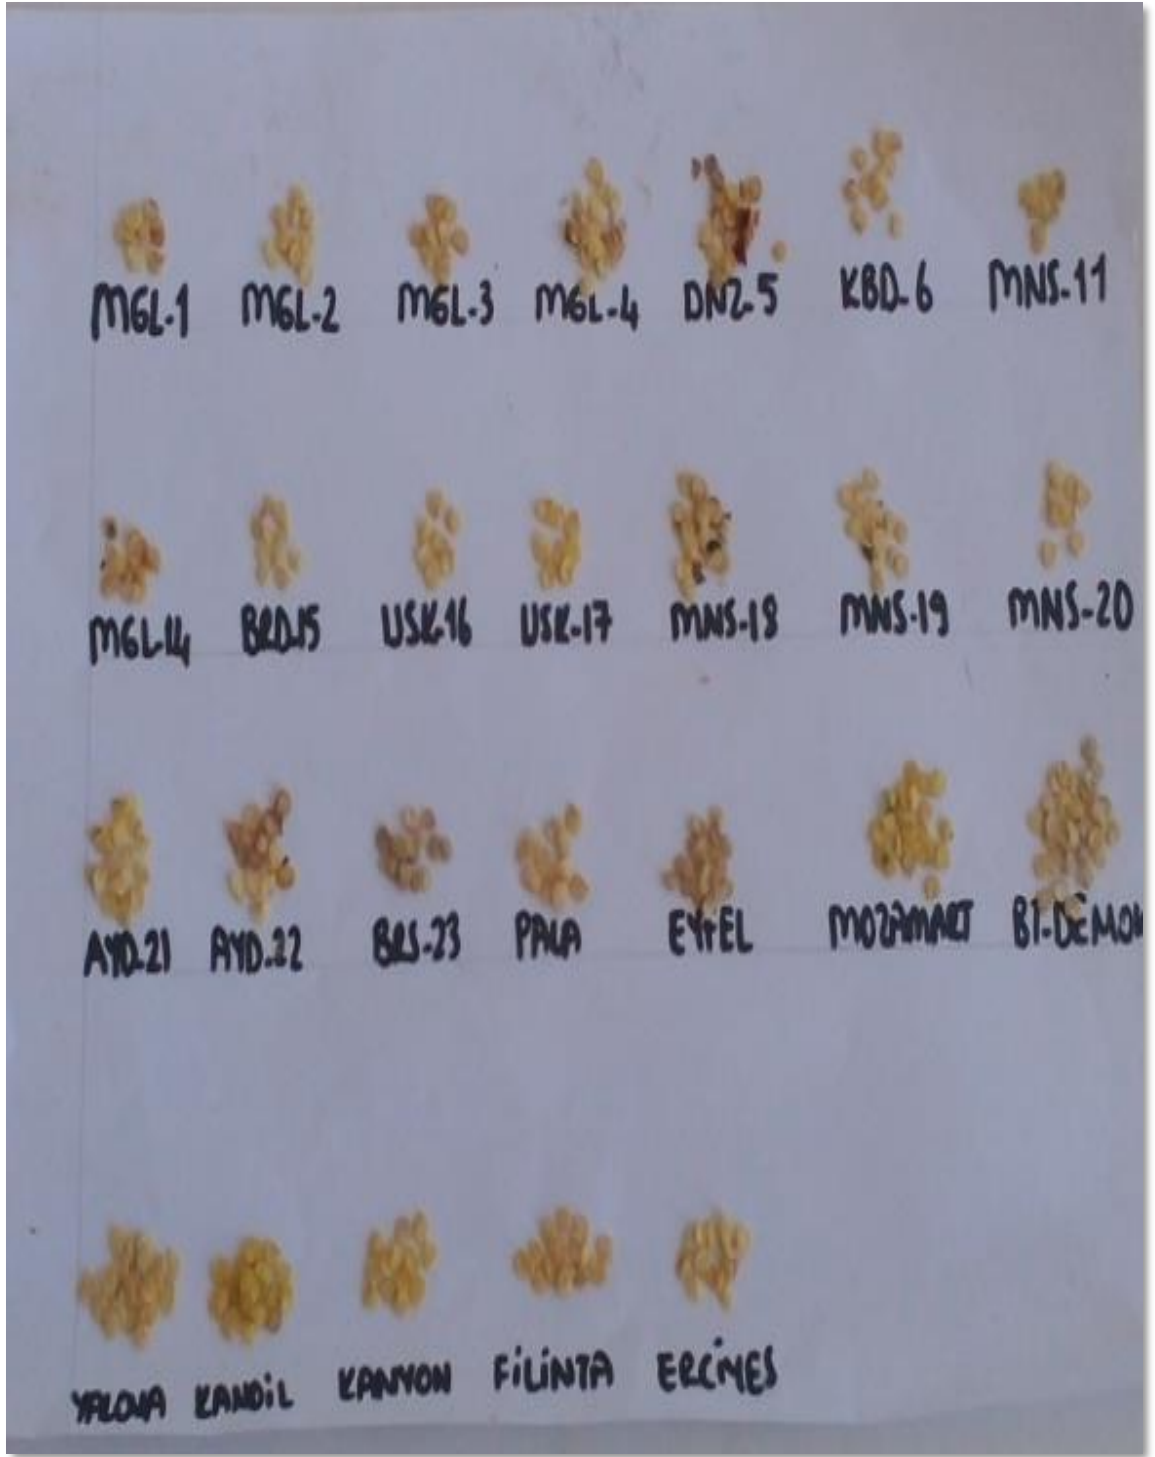 MGL-1 MGL-2 MGL-3 MGL-4 DNZ-5 KBD-6 MNS-11
MGL-14 BRD-15 USK-16 USK-17 MNS-18 MNS-19 MNS-20
AYD-21 AYD-22 BRS-23 PALA EYFEL MOZAMART BT-DEMON
YALOVA KANDİL KANYON FİLİNTA ERCİYES